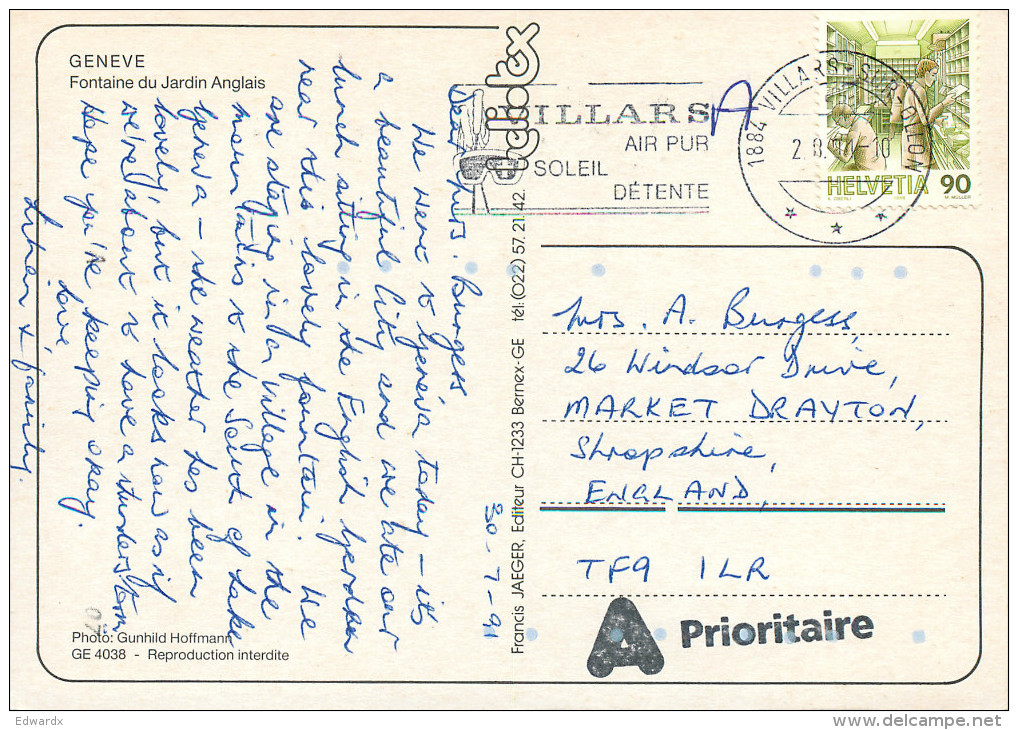 GENEVE
Fontaine du Jardin Anglais
30-7-91
Dear Mrs. Burgess
We went to Geneva today – it's
a beautiful City and we ate our
lunch sitting in the English Garden
near this lovely fountain. We
are staying in a village in the
mountains to the South of Lake
Geneva – the weather has been
lovely, but it looks now as if
we're about to have a thunderstorm
Hope you're keeping okay.
Love,
& family.
07
Photo: Gunhild Hoffmann
GE 4038 - Reproduction interdite
Francis JAEGER, Editeur CH-1233 Bernex-GE tél: (022) 57.21.42
VILLARS
AIR PUR
SOLEIL
DÉTENTE
A
1884 VILLARS-SUR-OLLON
HELVETIA 90
Mrs. A. Burgess,
26 Windsor Drive,
MARKET DRAYTON,
Shropshire,
ENGLAND,
TF9 1LR
A Prioritaire
Edwardx
delcampe.net